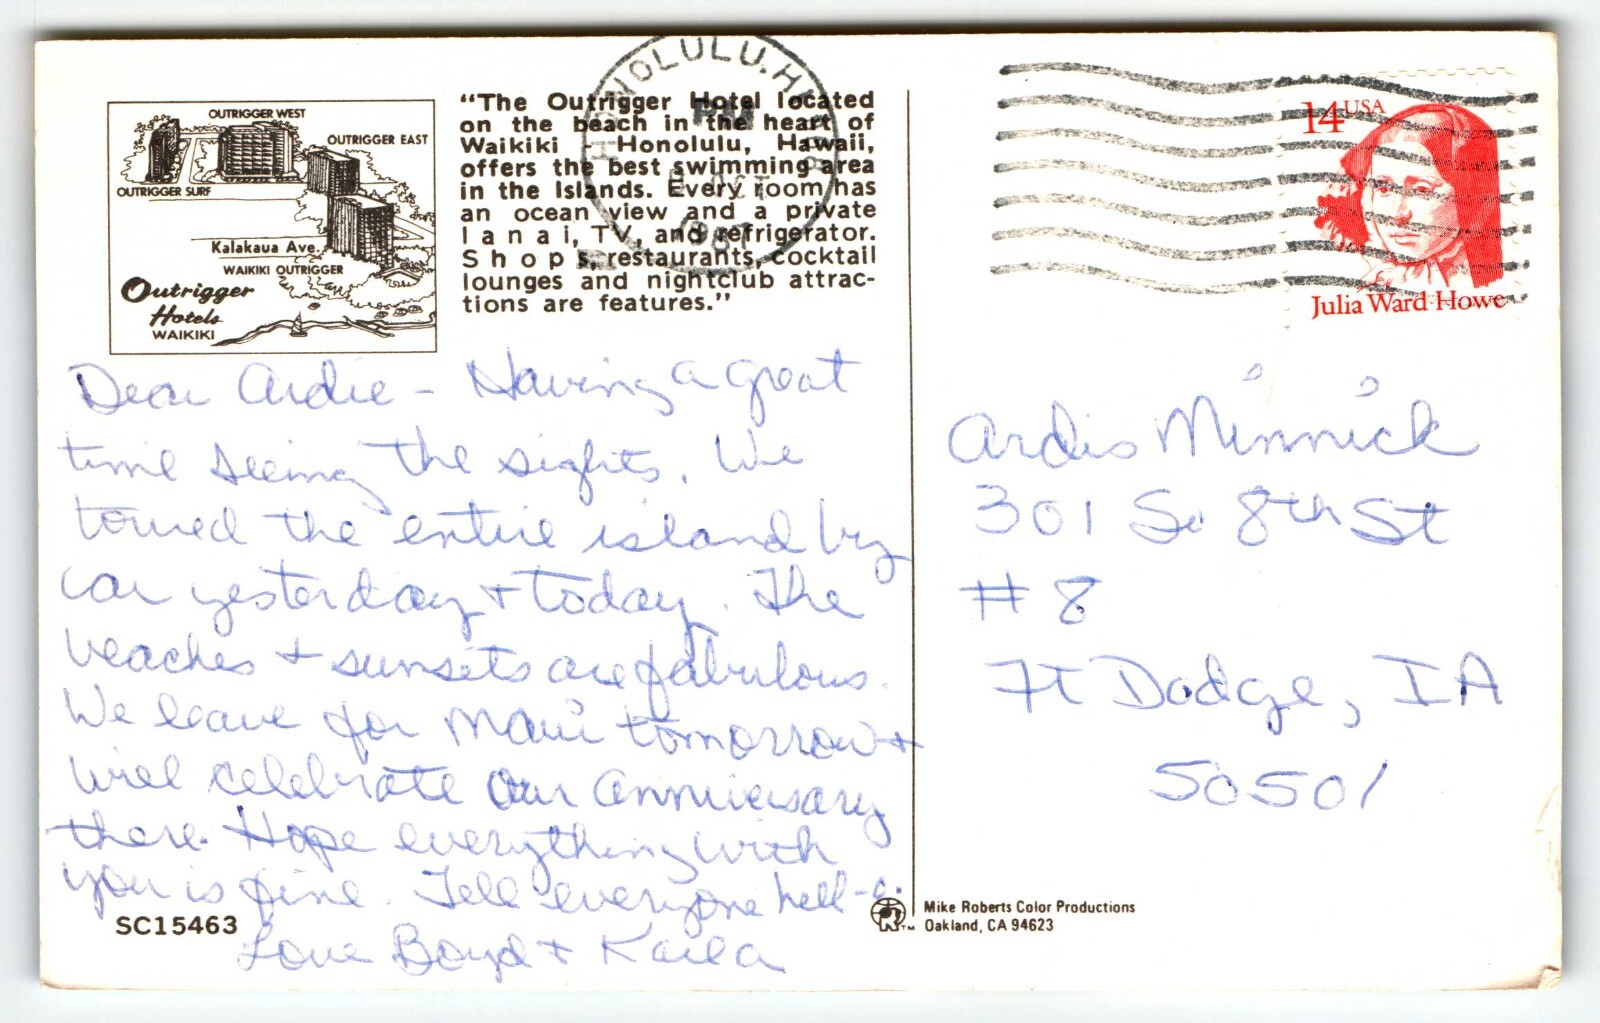 OUTRIGGER WEST
OUTRIGGER EAST
OUTRIGGER SURF
Kalakaua Ave.
WAIKIKI OUTRIGGER
Outrigger
Hotels
WAIKIKI
"The Outrigger Hotel located
on the beach in the heart of
Waikiki Honolulu, Hawaii,
offers the best swimming area
in the Islands. Every room has
an ocean view and a private
lanai, TV, and refrigerator.
Shops, restaurants, cocktail
lounges and nightclub attrac-
tions are features."
HONOLULU, HI
PM
OCT
1987
14 USA
Julia Ward Howe
Dear Ardie - Having a great
time seeing the sights. We
toured the entire island by
car yesterday + today. The
beaches + sunsets are fabulous.
We leave for Maui tomorrow +
will celebrate our anniversary
there. Hope everything with
you is fine. Tell everyone hell-o.
Love Boyd + Karla
Ardis Minnick
301 So 8th St
# 8
Ft Dodge, IA
50501
SC15463
Mike Roberts Color Productions
Oakland, CA 94623